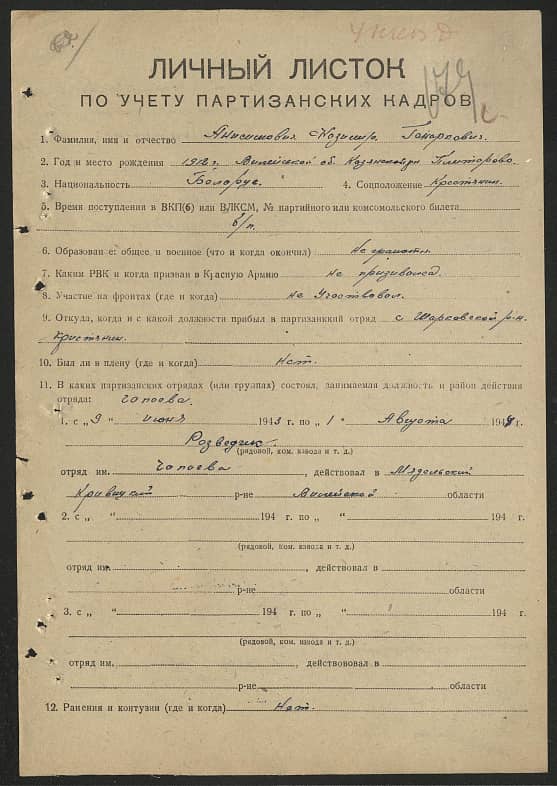 ЛИЧНЫЙ ЛИСТОК
ПО УЧЕТУ ПАРТИЗАНСКИХ КАДРОВ
1. Фамилия, имя и отчество Анисимович Казимир
2. Год и место рождения 1912 г. Вилейской об.
3. Национальность Белорус. 4. Соцположение Крестянин.
5. Время поступления в ВКП(б) или ВЛКСМ, № партийного или комсомольского билета
б/п.
6. Образование: общее и военное (что и когда окончил) Не грамотн
7. Каким РВК и когда призван в Красную Армию не призивался.
8. Участие на фронтах (где и когда) не Участвовал.
9. Откуда, когда и с какой должности прибыл в партизанкий отряд с Шарковской р-н.
Кристянин.
10. Был ли в плену (где и когда) Нет.
11. В каких партизанских отрядах (или группах) состоял, занимаемая должность и район действия
отряда: Чапаева.
1. с „ 9 “ июня 1943 г. по „ 1 “ Августа 1944 г.
Розведчик.
(рядовой, ком. взвода и т. д.)
отряд им. Чапаева , действовал в Мядельский
Кривицкий р-не Вилейской области
2. с „ “ 194 г. по „ “ 194 г.
(рядовой, ком. взвода и т. д.)
отряд им. , действовал в
р-не области
3. с „ “ 194 г. по „ “ 194 г.
(рядовой, ком. взвода и т. д.)
отряд им. , действовал в
р-не области
12. Ранения и контузии (где и когда) Нет.